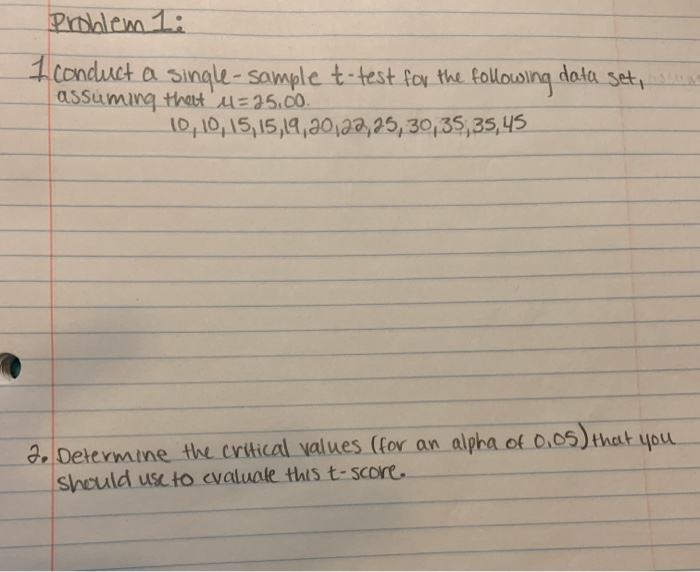 Problem 1:
1 conduct a single-sample t-test for the following data set,
assuming that μ=25.00.
10,10,15,15,19,20,22,25,30,35,35,45
2. Determine the critical values (for an alpha of 0.05) that you
should use to evaluate this t-score.